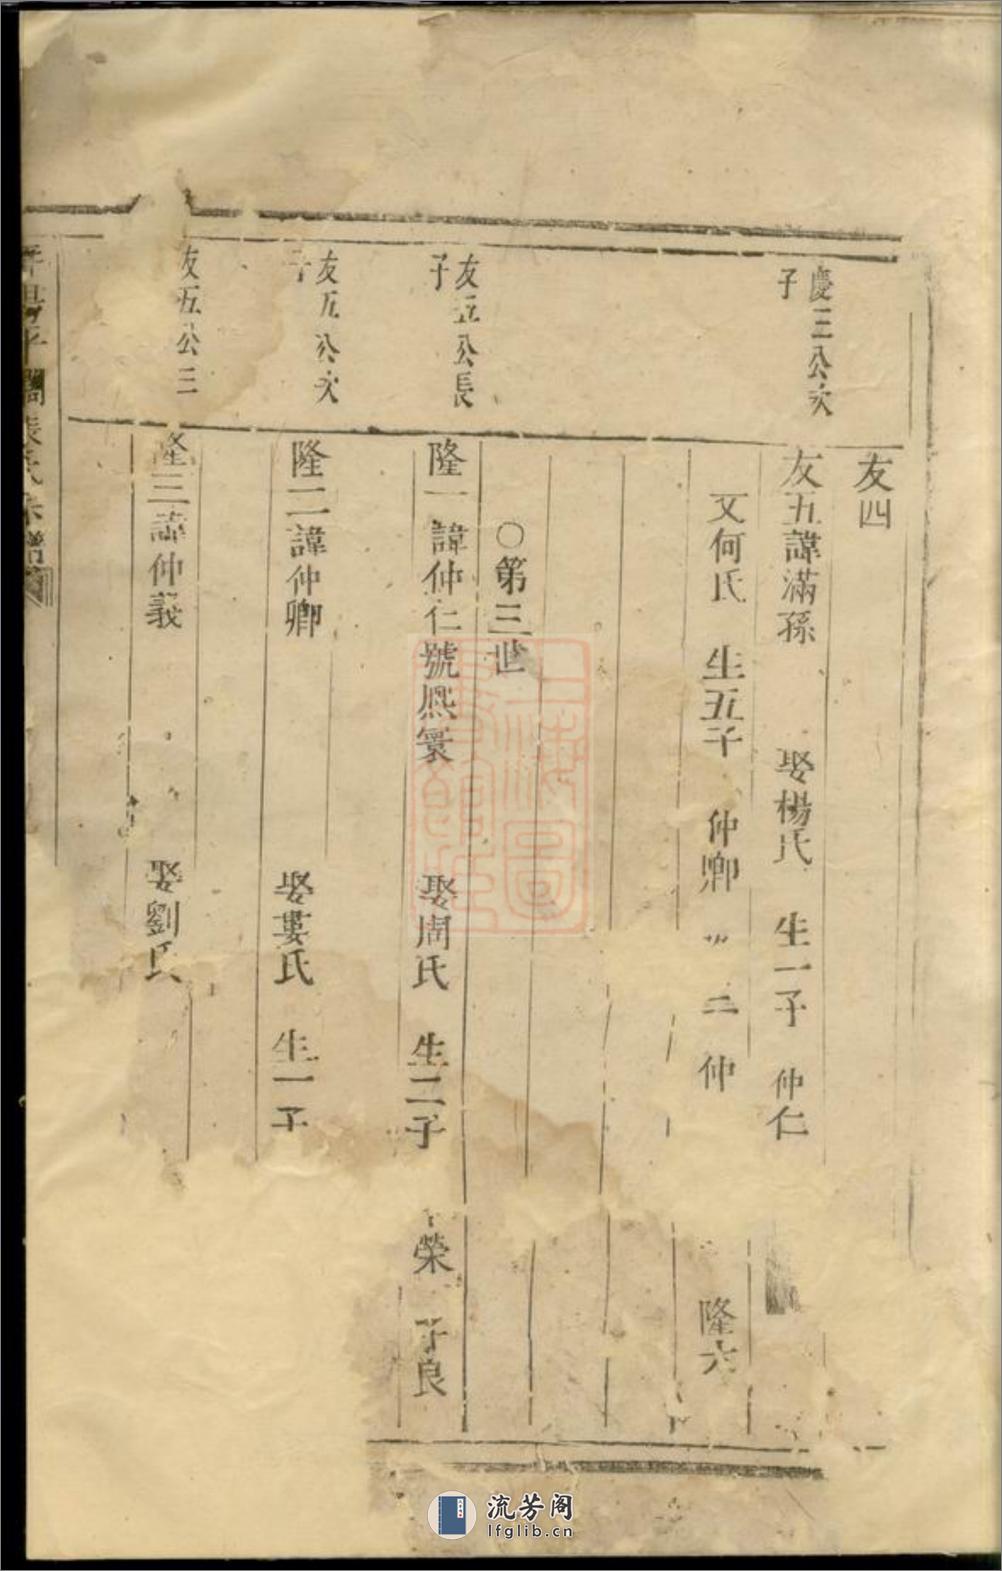 友四
慶三公次子
友五諱滿孫 娶楊氏 生一子 仲仁
又何氏 生五子 仲卿 仲 隆六
○第三世
友五公長子
隆一諱仲仁號熈寰 娶周氏 生二子 榮 子良
友五公次子
隆二諱仲卿 娶婁氏 生一子
友五公三
隆三諱仲義 娶劉氏
張氏宗譜
流芳阁
lfglib.cn